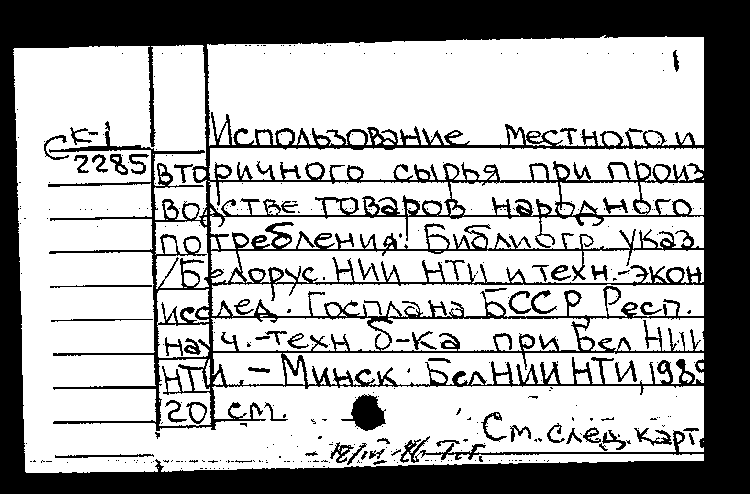 1
СК-1
2285
Использование местного и
вторичного сырья при произ
водстве товаров народного
потребления: Библиогр. указ.
/Белорус. НИИ НТИ и техн.-экон
исслед. Госплана БССР, Респ.
науч.-техн. б-ка при БелНИИ
НТИ. – Минск: БелНИИНТИ, 198
20 см.
См. след. карт.